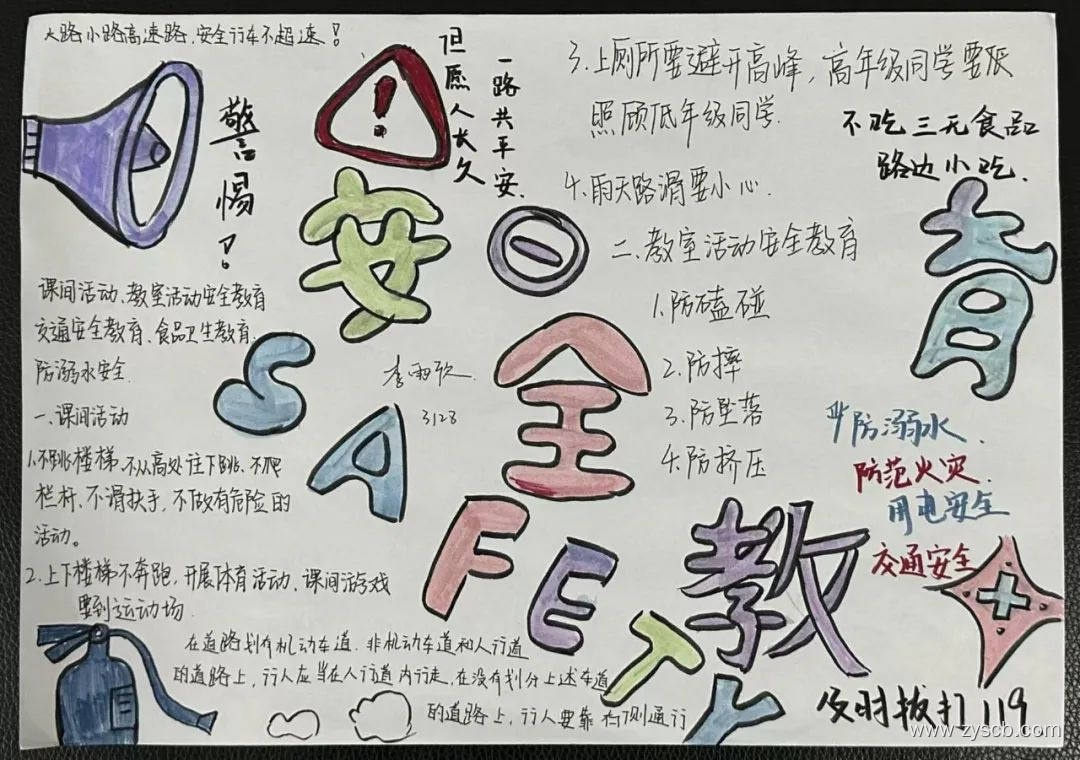 大路小路高速路,安全行车不超速!
警惕!
但愿人长久
一路共平安.
3.上厕所要避开高峰,高年级同学要
照顾低年级同学.
4.雨天路滑要小心.
不吃三无食品
路边小吃.
二.教室活动安全教育
1.防磕碰
2.防摔
3.防坠落
4.防挤压
安全教育
SAFETY
课间活动、教室活动安全教育
交通安全教育、食品卫生教育.
防溺水安全.
一.课间活动
1.不跳楼梯、不从高处往下跳、不爬
栏杆、不滑扶手,不做有危险的
活动。
2.上下楼梯不奔跑,开展体育活动、课间游戏
要到运动场.
李雨
3128
防溺水.
防范火灾.
用电安全
交通安全
在道路划有机动车道、非机动车道和人行道
的道路上,行人应当在人行道内行走,在没有划分上述车道
的道路上,行人要靠右侧通行
及时拔打119
www.zyscb.com